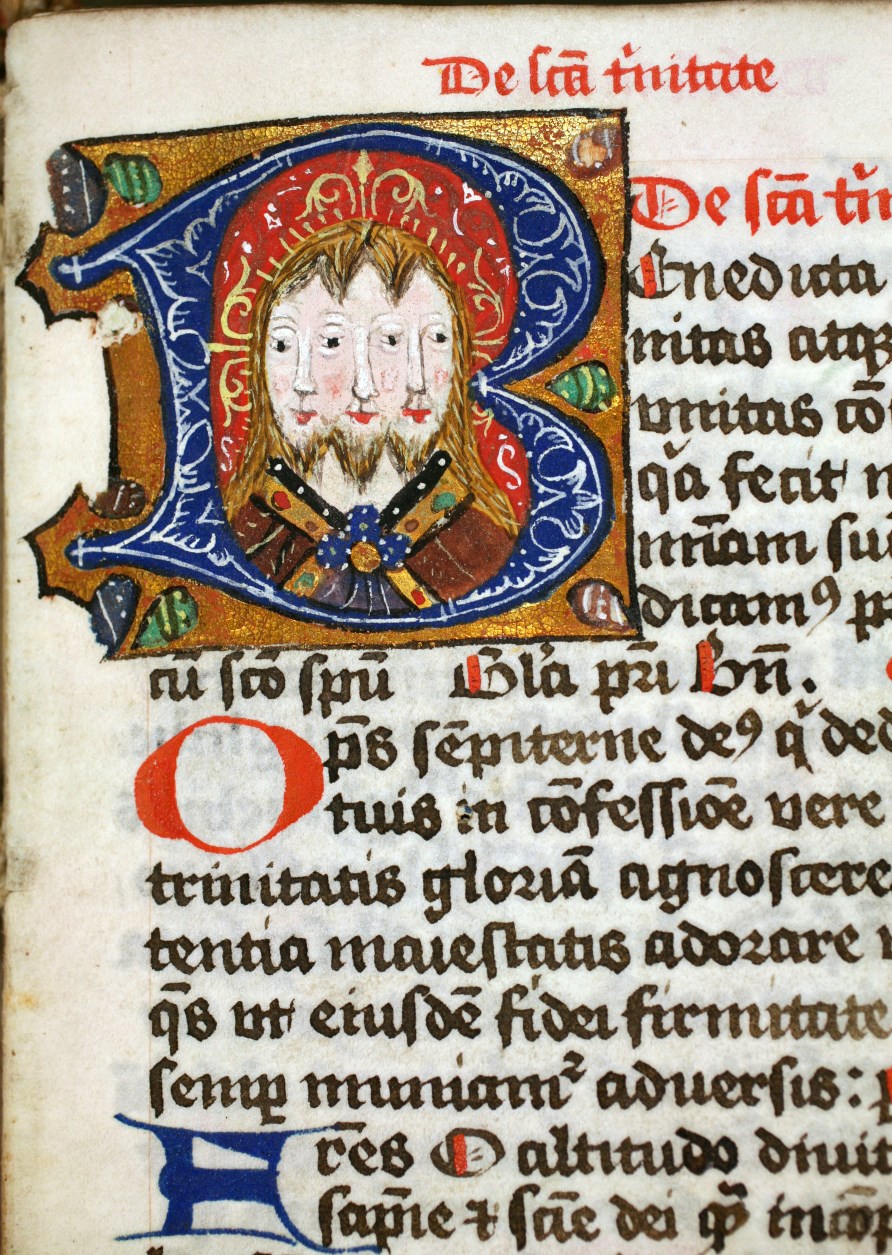 De scā t'nitate
De scā t'i
Benedicta
nitas atqȝ
vnitas cō
q'a fecit n
nr̄am su
dicamꝰ p
cū scō sp̄u Gl'a pr̄i Bn̄.
Op̄s sēpiterne deꝰ q' ded
tuis in cōfessiōe vere
trinitatis gloriā agnoscere
tentia maiestatis adorare
q̄s vt eiusdē fidei firmitate
semꝑ muniam² aduersis:
Fr̄es O altitudo diuit
sapīe ⁊ sciē dei